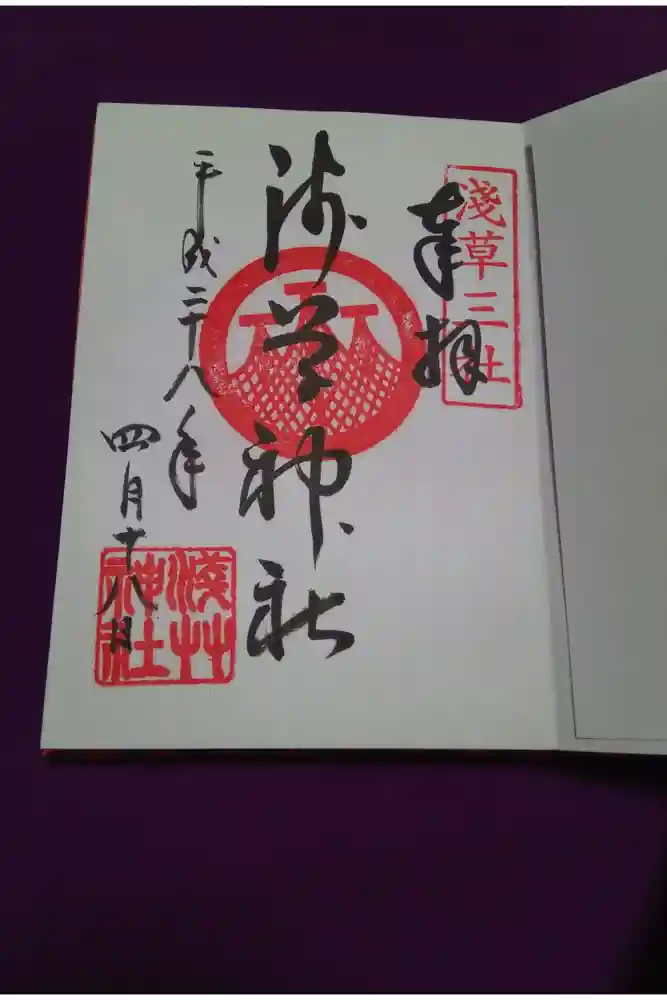 淺草三社
奉拝
浅草神社
平成二十八年
四月十八日
淺艸
神社